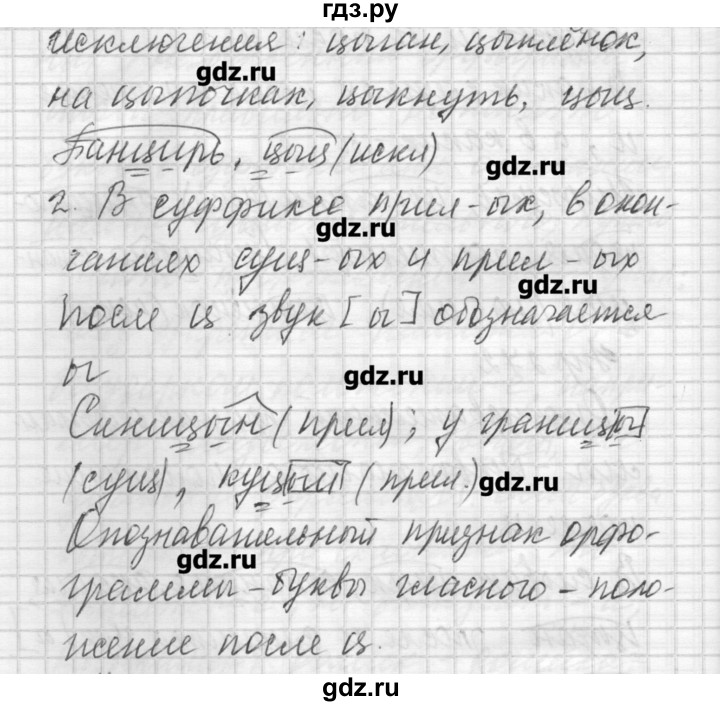 гдз.ру
исключения: цыган, цыплёнок,
gdz.ru
на цыпочках, цыкнуть, цыц.
Панцирь, цыц (искл)
gdz.ru
2. В суффиксе прил-ых, в окон-
gdz.ru
чаниях сущ-ых и прил-ых
gdz.ru
после ц звук [ы] обозначается
ы
gdz.ru
Синицын (прил); у границы
(сущ), куцый (прил.)
gdz.ru
Опознавательный признак орфо-
gdz.ru
граммы - буквы гласного - поло-
жение после ц.
gdz.ru